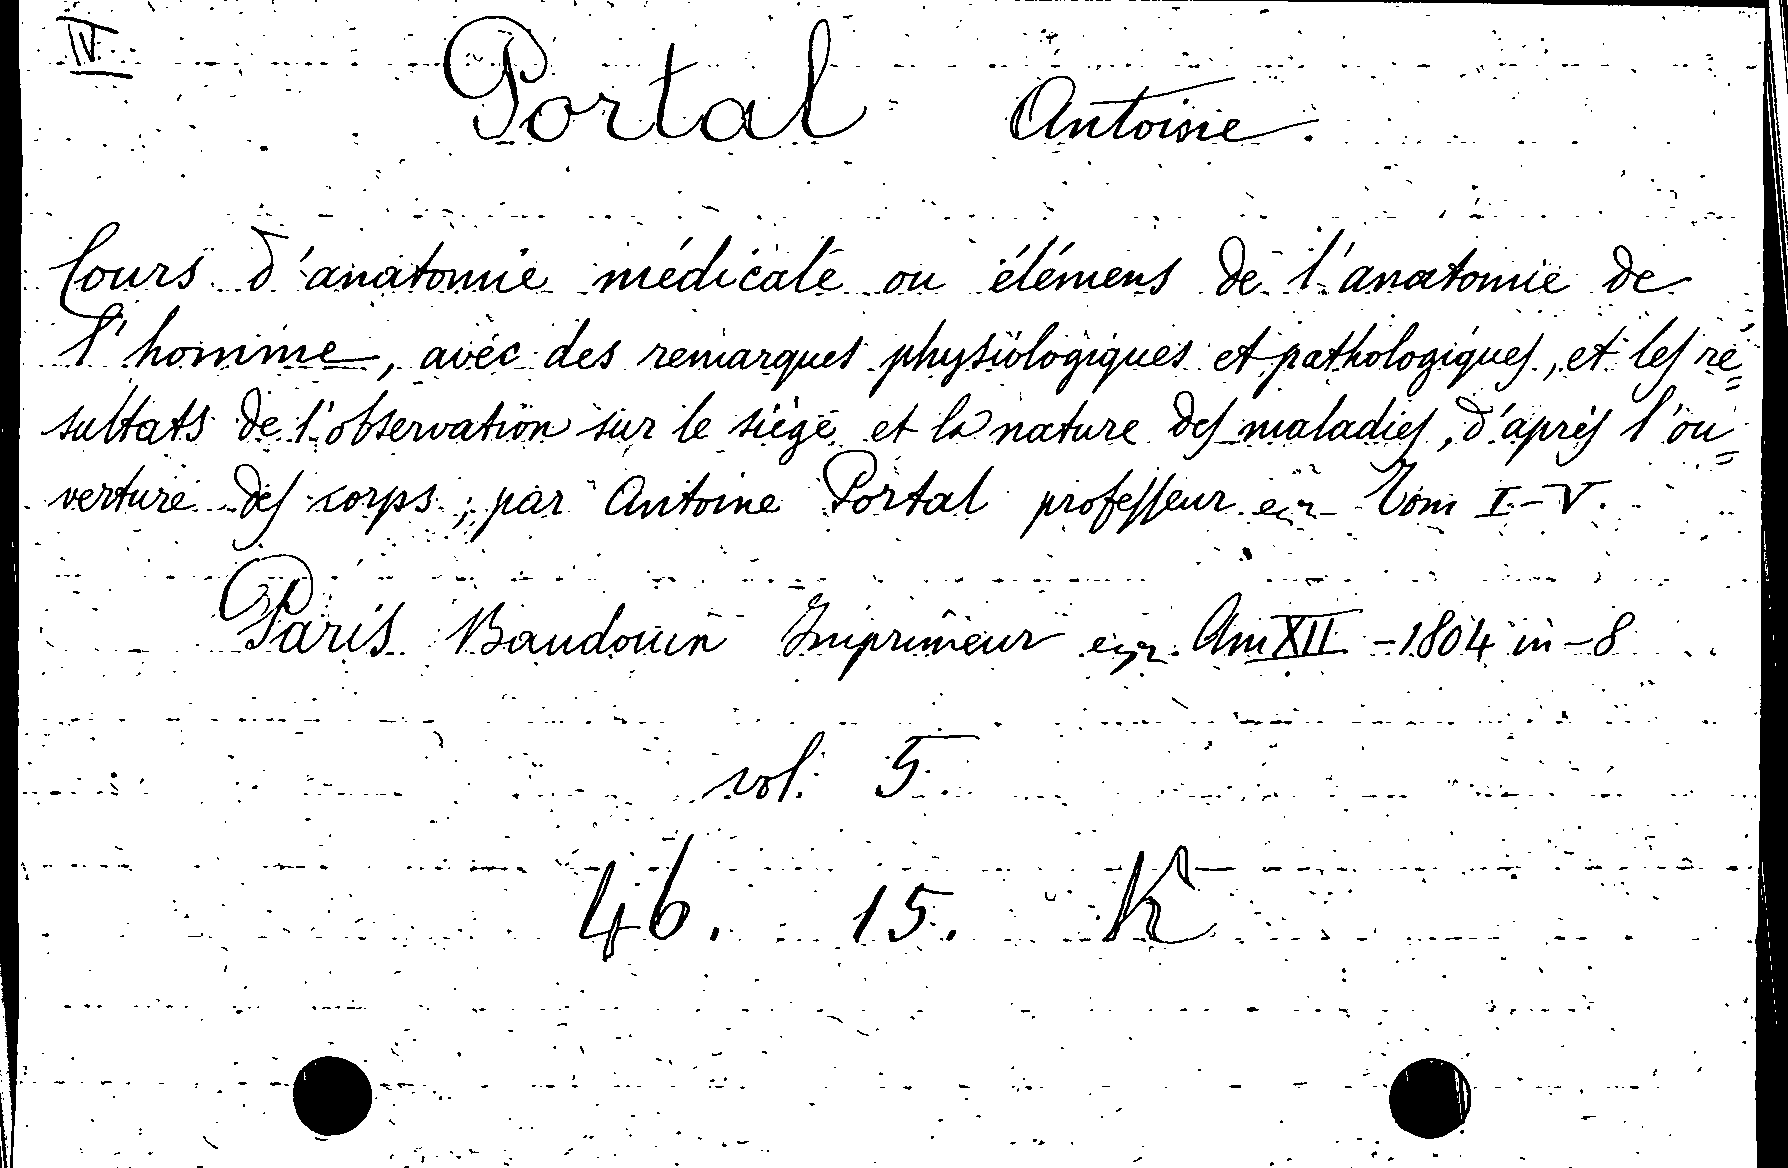 IV.
Portal Antoine.
Cours d'anatomie médicale ou élémens de l'anatomie de
l'homme, avec des remarques physiologiques et pathologiques, et les ré=
sultats de l'observation sur le siège et la nature des maladies, d'après l'ou=
verture des corps; par Antoine Portal professeur etc. Tom I-V.
Paris Baudouin Imprimeur etc. An XII - 1804 in-8
vol. 5
46. 15. K